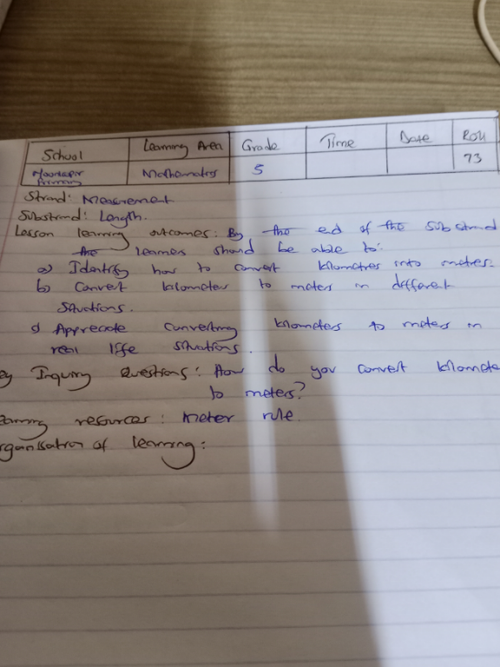 School Learning Area Grade Time Date Roll
Primary Mathematics 5 73
Strand: Measurement
Substrand: Length.
Lesson learning outcomes: By the end of the substrand
the learner should be able to:
a) Identify how to convert kilometres into metres.
b) Convert kilometers to meters in different
situations.
c) Appreciate converting kilometers to meters in
real life situations.
ey Inquiry Questions: How do you convert kilomete
to meters?
earning resources: Meter rule
rganisation of learning: